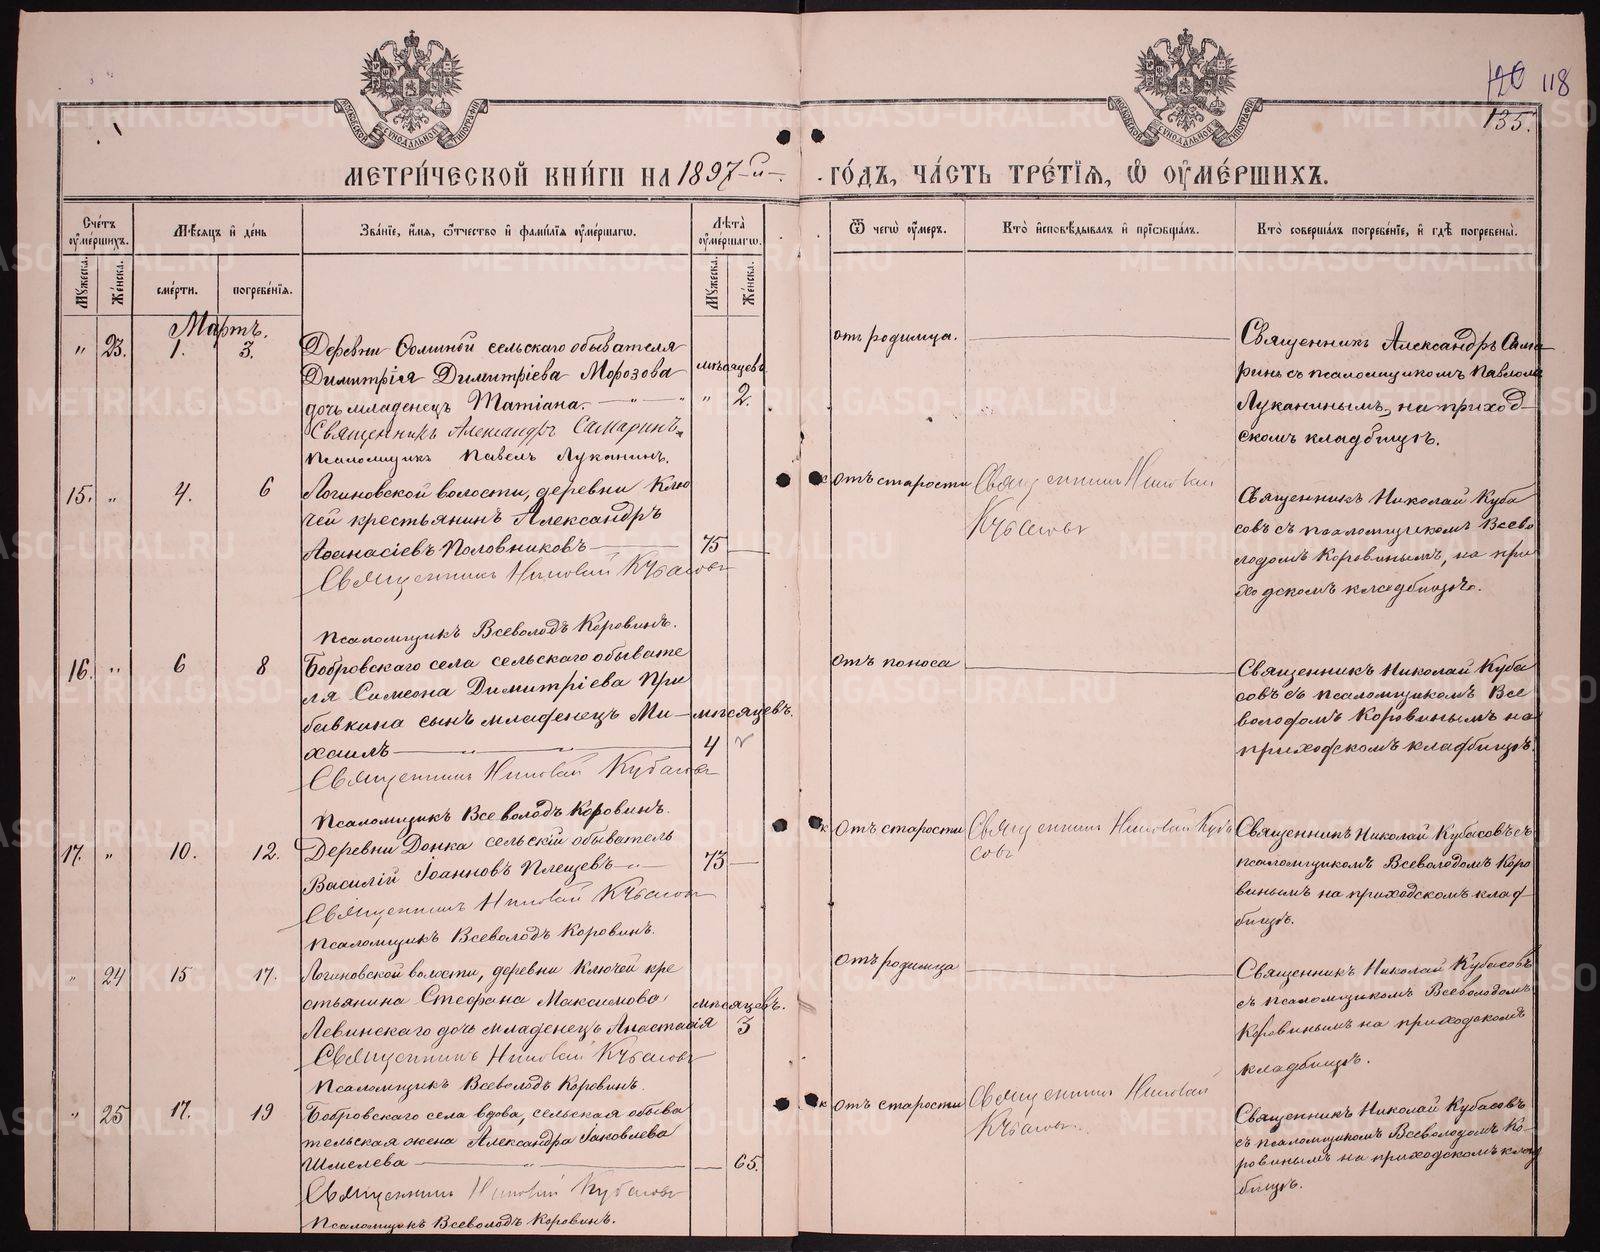 120 118
135.
МЕТРИ́ЧЕСКОЙ КНИ́ГИ НА 1897-й-
ГО́ДЪ, ЧА́СТЬ ТРЕ́ТІѦ, Ѽ ОУ҆МЕ́РШИХЪ.
Сче́тъ оу҆ме́ршихъ.
Мꙋжеска.
Же́нска.
Мѣ́сяцъ и҆ де́нь
сме́рти.
погребе́нїѧ.
Зва́нїе, и҆́мѧ, ѻ҆́тчество и҆ фами́лїѧ оу҆ме́ршагѡ.
Лѣ́та оу҆ме́ршагѡ.
Мꙋжеска.
Же́нска.
Ѿ чегѡ̀ оу҆́меръ.
Кто̀ и҆сповѣ́дывалъ и҆ прїѡбща́лъ.
Кто̀ соверша́лъ погребе́нїе, и҆ гдѣ̀ погребены̀.
Мартъ.
" 23. 1. 3.
Деревни Соминой сельскаго обывателя
Димитрія Димитріева Морозова
дочь младенецъ Татіана.
Священникъ Александръ Самаринъ.
Псаломщикъ Павелъ Луканинъ.
мѣсяцевъ
" 2.
отъ родимца.
Священникъ Александръ Сама
ринъ съ псаломщикомъ Павломъ
Луканинымъ, на приход-
скомъ кладбищѣ.
15. " 4. 6
Логиновской волости, деревни Клю
чей крестьянинъ Александръ
Аѳанасіевъ Половниковъ
Священникъ Николай Кубасовъ
Псаломщикъ Всеволодъ Коровинъ.
75
отъ старости
Священникъ Николай
Кубасовъ
Священникъ Николай Куба
совъ съ псаломщикомъ Всево
лодомъ Коровинымъ, на при
ходскомъ кладбищѣ.
16. " 6 8
Бобровскаго села сельскаго обывате
ля Симеона Димитріева При
бавкина сынъ младенецъ Ми-
хаилъ
Священникъ Николай Кубасовъ
Псаломщикъ Всеволодъ Коровинъ.
мѣсяцевъ.
4
отъ поноса
Священникъ Николай Куба
совъ съ псаломщикомъ Все
володомъ Коровинымъ на
приходскомъ кладбищѣ.
17. " 10. 12.
Деревни Донка сельскій обыватель
Василій Іоанновъ Плещевъ
Священникъ Николай Кубасовъ
Псаломщикъ Всеволодъ Коровинъ.
73
Отъ старости
Священникъ Николай Куба
совъ
Священникъ Николай Кубасовъ съ
псаломщикомъ Всеволодомъ Коро
винымъ на приходскомъ клад
бищѣ.
" 24 15 17.
Логиновской волости, деревни Ключей кре
стьянина Стефана Максимова
Левинскаго дочь младенецъ Анастасія
Священникъ Николай Кубасовъ
Псаломщикъ Всеволодъ Коровинъ.
мѣсяцевъ.
3
Отъ родимца
Священникъ Николай Кубасовъ
съ псаломщикомъ Всеволодомъ
Коровинымъ на приходскомъ
кладбищѣ.
" 25 17. 19
Бобровскаго села вдова, сельская обыва
тельская жена Александра Іаковлева
Шмелева
Священникъ Николай Кубасовъ
Псаломщикъ Всеволодъ Коровинъ.
65.
отъ старости
Священникъ Николай
Кубасовъ.
Священникъ Николай Кубасовъ
съ псаломщикомъ Всеволодомъ Ко-
ровинымъ на приходскомъ клад
бищѣ.
METRIKI.GASO-URAL.RU